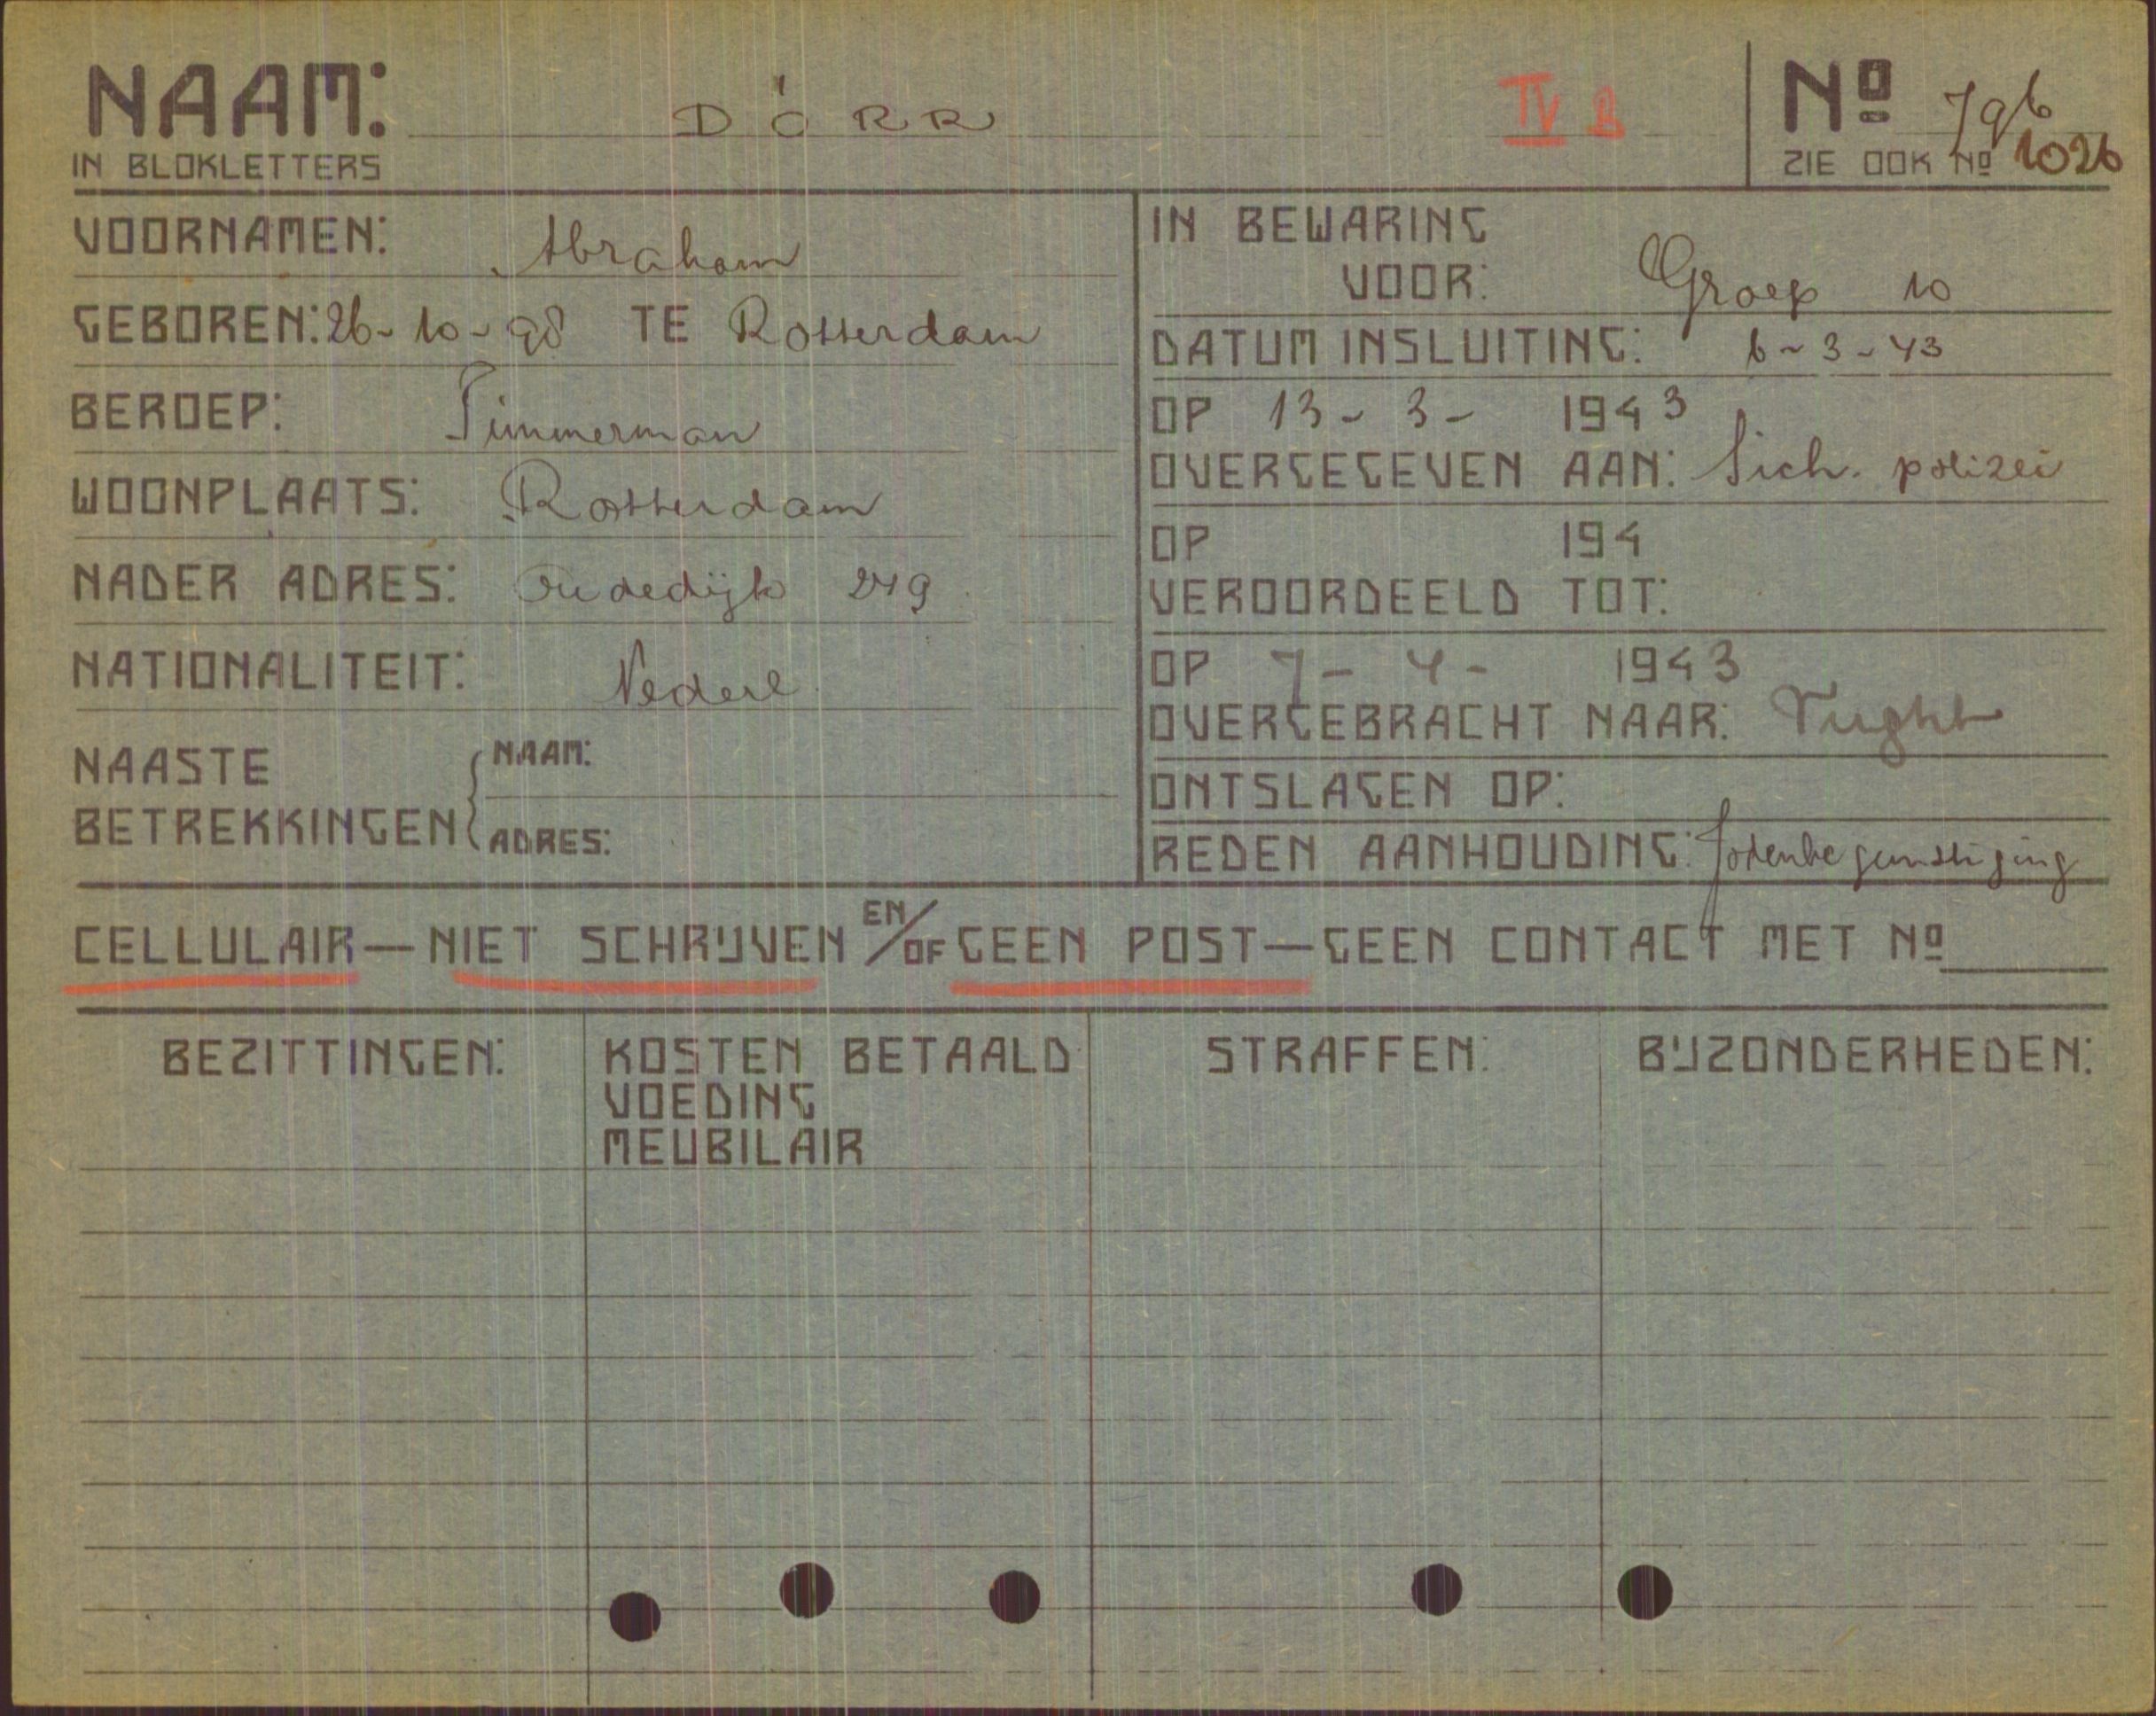 NAAM: DÖRR IV B Nº 796
IN BLOKLETTERS ZIE OOK Nº 1026
VOORNAMEN: Abraham
GEBOREN: 26-10-98 TE Rotterdam
BEROEP: Timmerman
WOONPLAATS: Rotterdam
NADER ADRES: Oudedijk 249
NATIONALITEIT: Nederl
NAASTE BETREKKINGEN
NAAM:
ADRES:
IN BEWARING
VOOR: Groep 10
DATUM INSLUITING: 6-3-43
OP 13-3- 1943
OVERGEGEVEN AAN: Sich. polizei
OP 194
VEROORDEELD TOT:
OP 7-4- 1943
OVERGEBRACHT NAAR: Vught
ONTSLAGEN OP:
REDEN AANHOUDING: Jodenbegunstiging
CELLULAIR — NIET SCHRIJVEN EN/OF GEEN POST — GEEN CONTACT MET Nº
BEZITTINGEN:
KOSTEN BETAALD
VOEDING
MEUBILAIR
STRAFFEN:
BIJZONDERHEDEN: